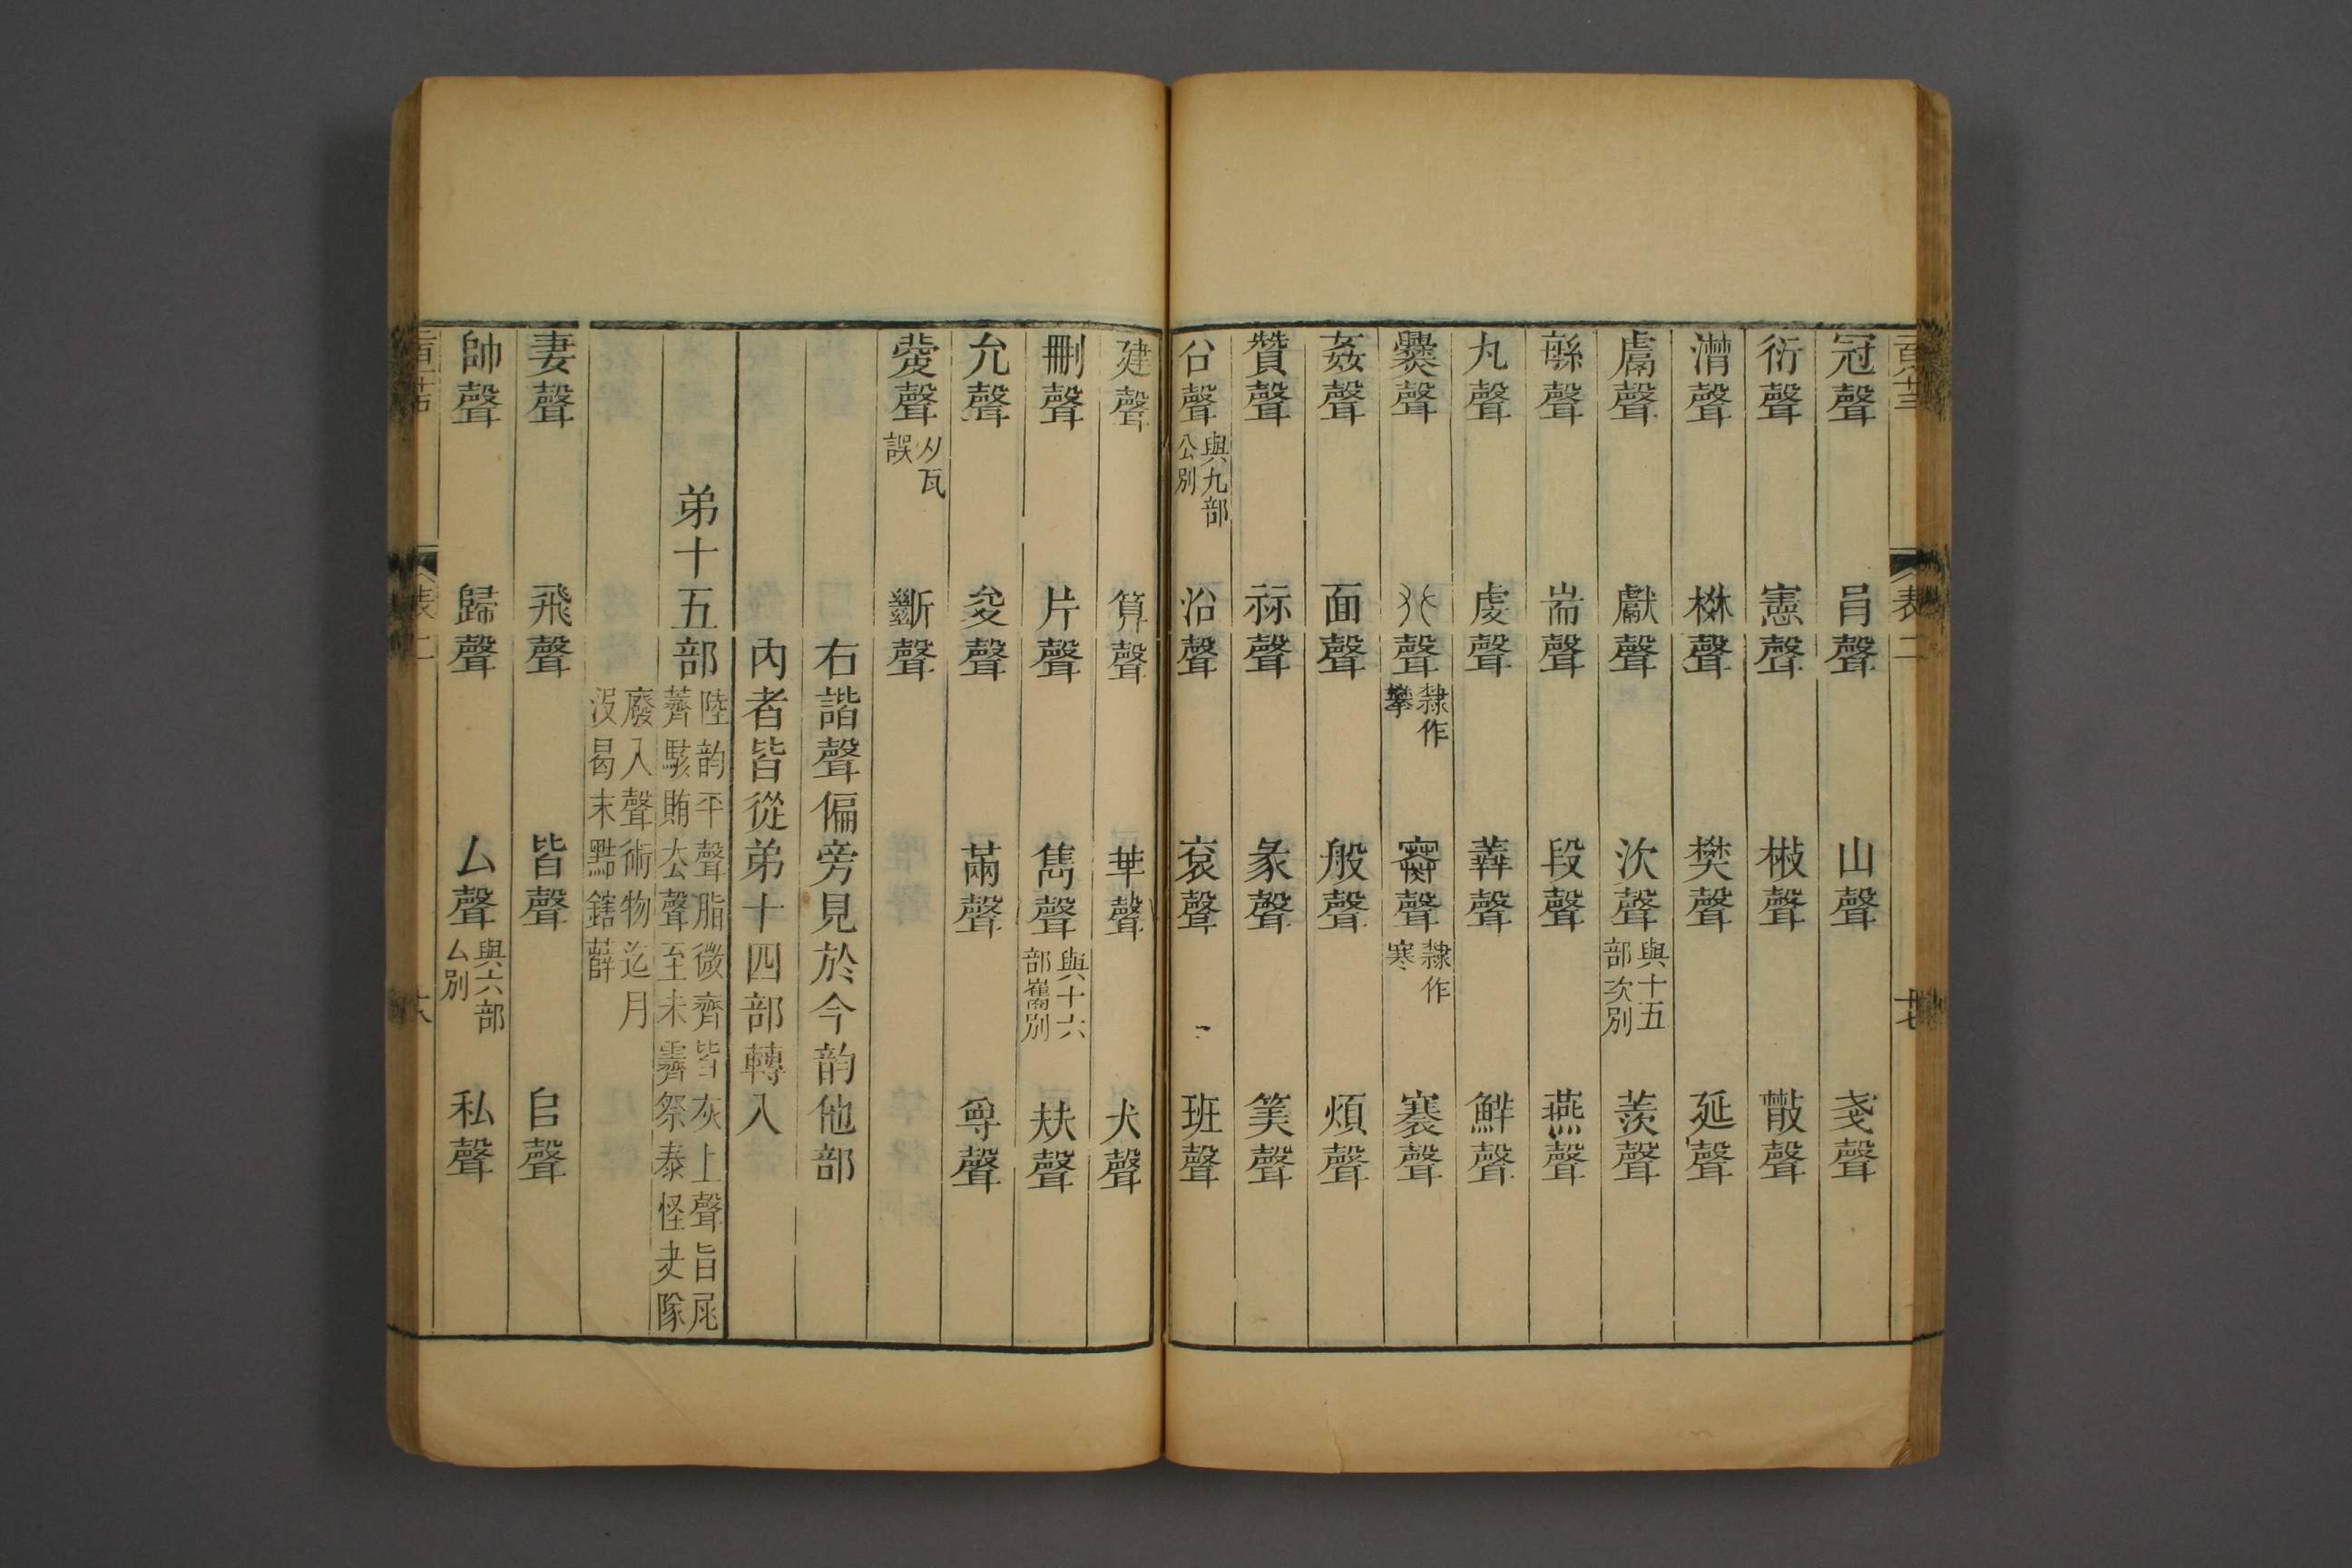 冠聲 㠯聲 山聲 戔聲
衍聲 憲聲 㪔聲 𢿱聲
潸聲 㯕聲 樊聲 延聲
鬳聲 獻聲 㳄聲 與十五部次別 羨聲
緐聲 耑聲 段聲 燕聲
丸聲 虔聲 羴聲 鮮聲
爨聲 𠬜聲 隸作𢸅 𡫳聲 隸作寒 褰聲
姦聲 面聲 般聲 煩聲
贊聲 祘聲 彖聲 筭聲
㕣聲 與九部公別 沿聲 袞聲 班聲
建聲 算聲 𠦒聲 犬聲
刪聲 片聲 雋聲 與十六部巂別 㚘聲
允聲 夋聲 㒼聲 尊聲
㼱聲 从瓦誤 斷聲
右諧聲偏旁見於今韵他部
內者皆從弟十四部轉入
弟十五部 陸韵平聲脂微齊皆灰上聲旨尾薺駭賄去聲至未霽祭泰怪夬隊
廢入聲術物迄月沒曷末黠鎋薛
妻聲 飛聲 皆聲 𠂤聲
帥聲 歸聲 厶聲 與六部厶別 私聲